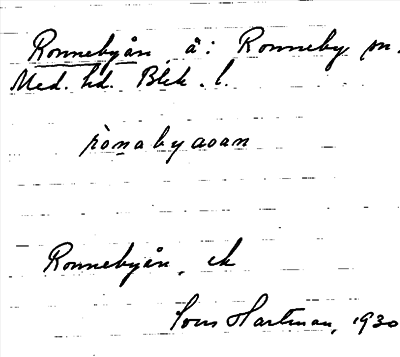 Ronnebyån å: Ronneby sn.
Med. hd. Blek. l.
rònabyaoan
Ronnebyån, ek
Hartman, 1930